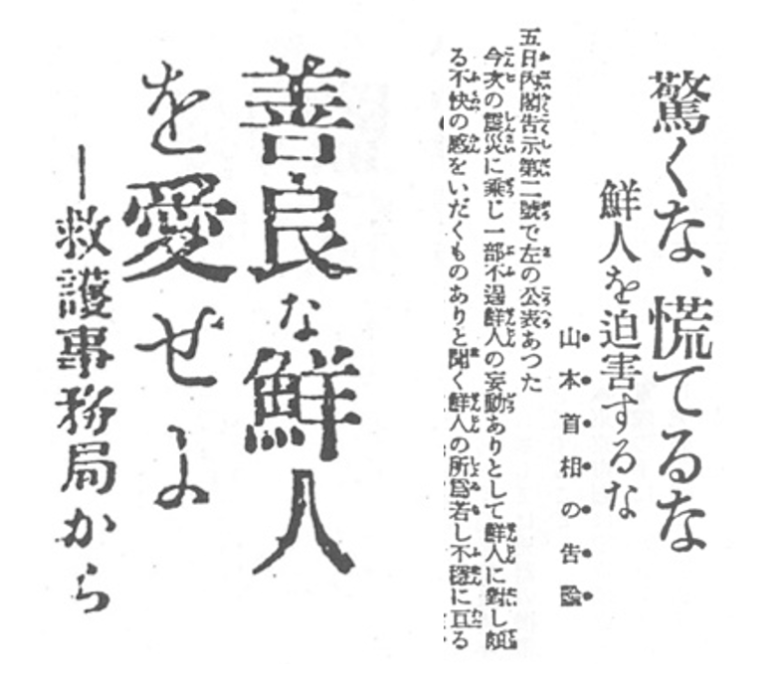 驚くな、慌てるな
鮮人を迫害するな
山本首相の告諭
五日内閣告示第二號で左の公表あつた
今次の震災に乘じ一部不逞鮮人の妄動ありとして鮮人に對し頗
る不快の感をいだくものありと聞く鮮人の所爲若し不穩に亘る
善良な鮮人
を愛せよ
―救護事務局から